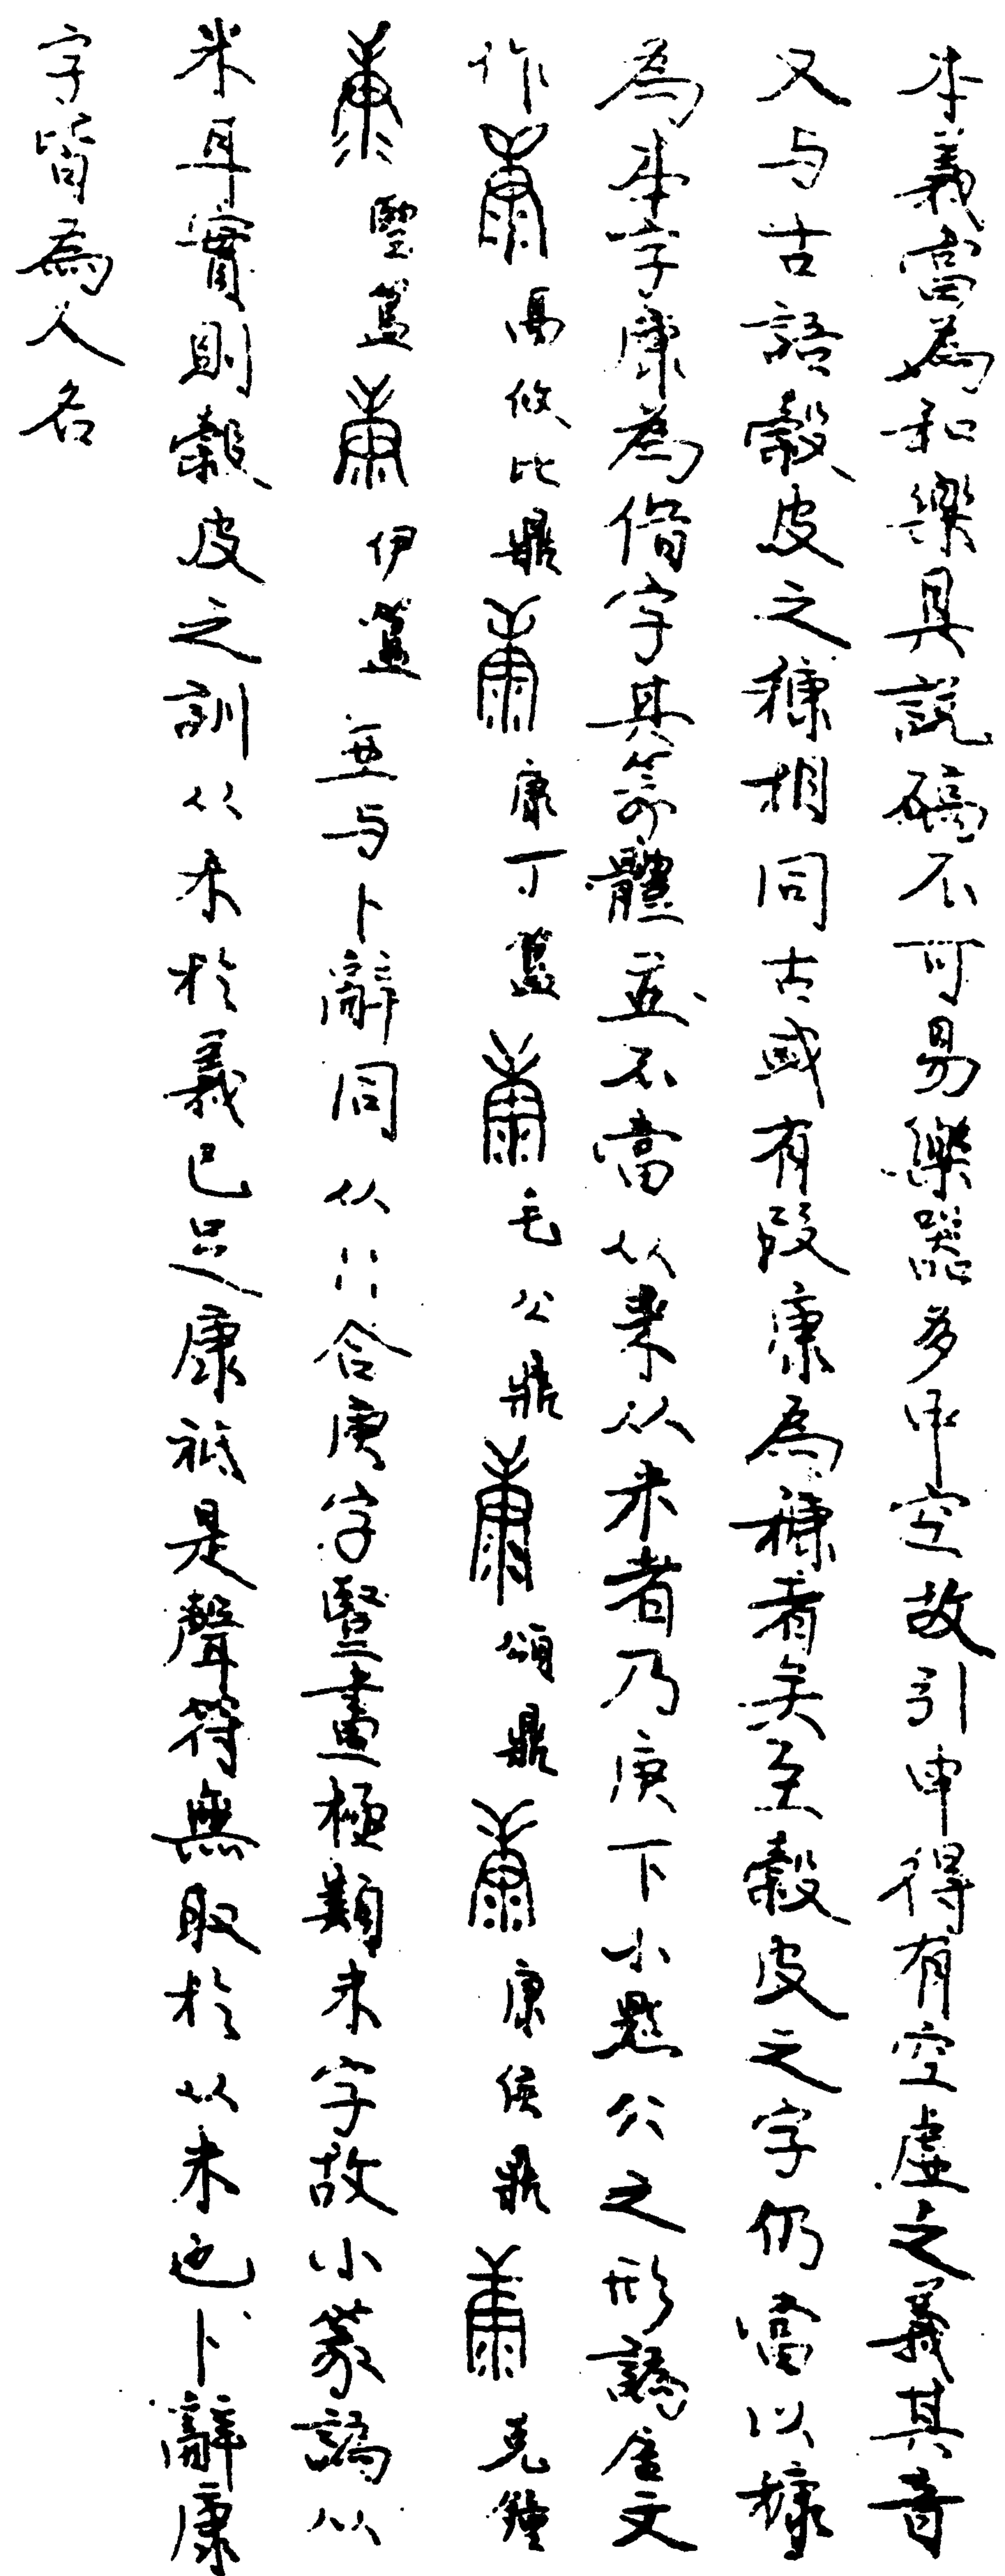 本義當為和樂其說碻不可易樂器多中空故引申得有空虛之義其音
又与古語穀皮之穅相同古或有叚康為穅者矣至穀皮之字仍當以穅
為本字康為借字其篆體並不當从米从米者乃庚下小點公之形譌金文
作 鬲攸比鼎 康丁簋 毛公鼎 頌鼎 康侯鼎 克鐘
簋 伊簋 並与卜辭同从八八合庚字豎畫極類米字故小篆譌从
米耳實則穀皮之訓从禾於義已足康祇是聲符無取於从米也卜辭康
字皆為人名